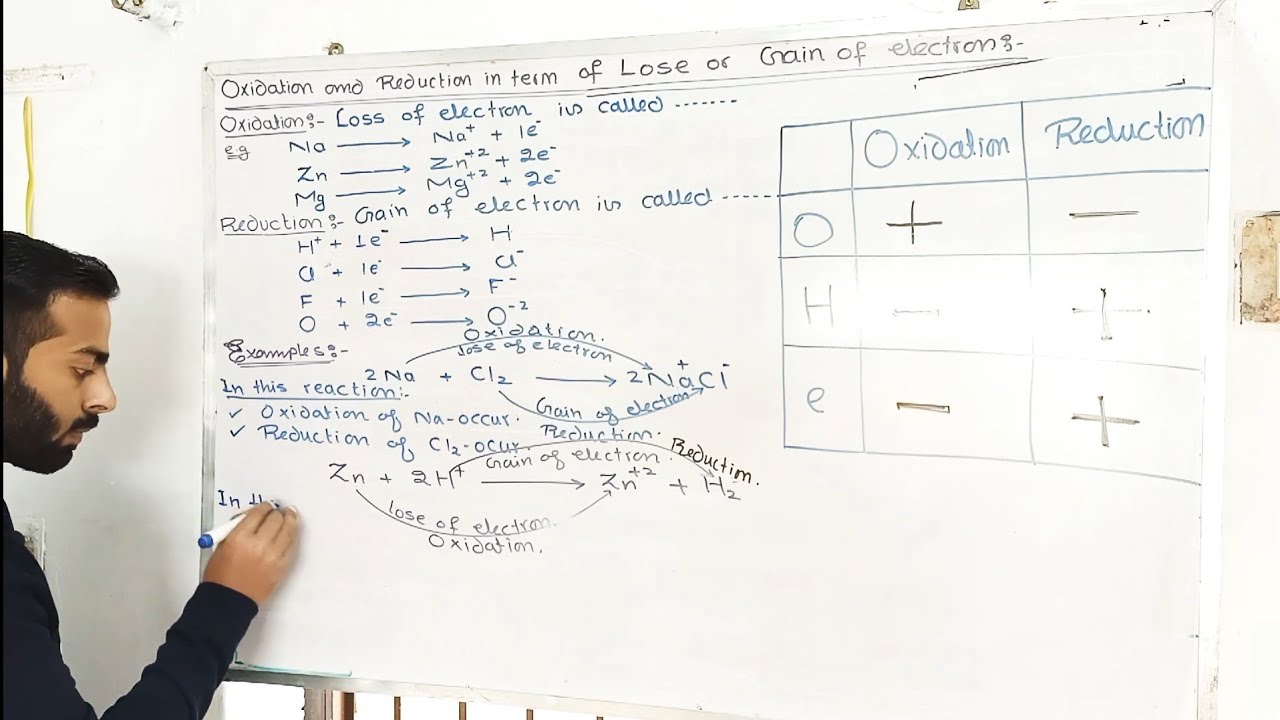 Oxidation and Reduction in term of Lose or Gain of electron:-
Oxidation:- Loss of electron is called -------
e.g Na ⟶ Na⁺ + 1e⁻
Zn ⟶ Zn⁺² + 2e⁻
Mg ⟶ Mg⁺² + 2e⁻
Reduction:- Gain of electron is called ------
H⁺ + 1e⁻ ⟶ H
Cl + 1e⁻ ⟶ Cl⁻
F + 1e⁻ ⟶ F⁻
O + 2e⁻ ⟶ O⁻²
Examples:-
Oxidation.
lose of electron
2Na + Cl₂ ⟶ 2Na⁺Cl⁻
Gain of electron
Reduction.
In this reaction:-
✓ Oxidation of Na-occur.
✓ Reduction of Cl₂-ocur.
Reduction.
Gain of electron.
Zn + 2H⁺ ⟶ Zn⁺² + H₂
lose of electron.
Oxidation.
In th
Oxidation Reduction
O + −
H − +
e − +